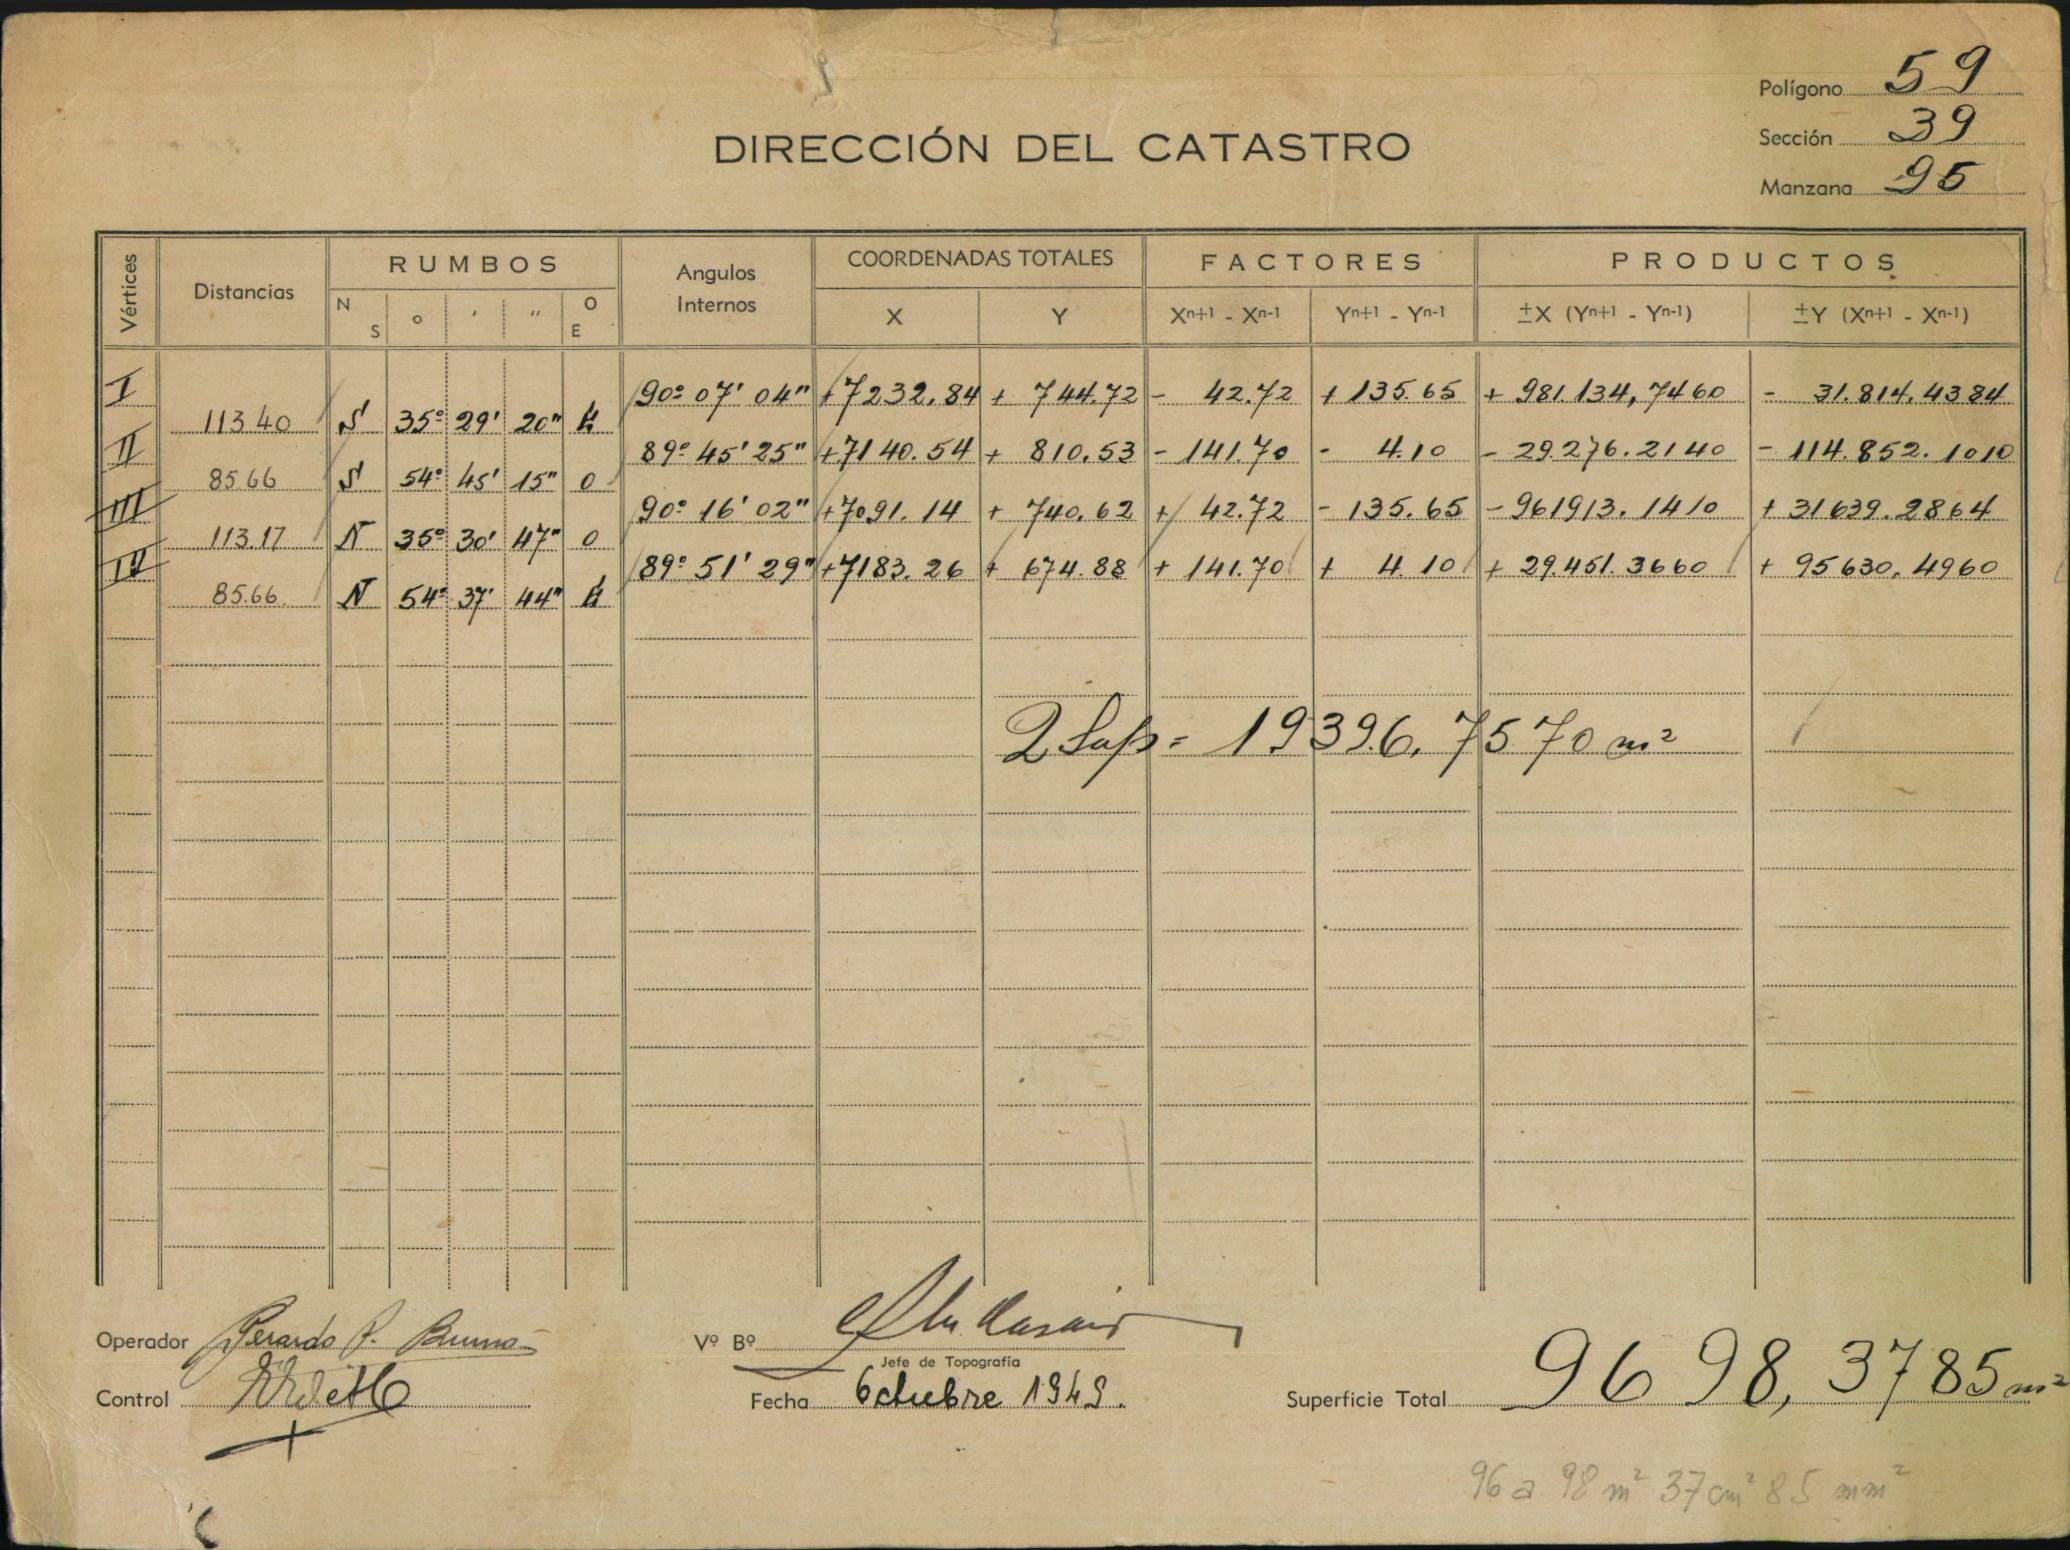 Polígono 59
Sección 39
Manzana 95
DIRECCIÓN DEL CATASTRO
Vértices Distancias RUMBOS Angulos Internos COORDENADAS TOTALES FACTORES PRODUCTOS
N S ° ' " O E X Y Xn+1 - Xn-1 Yn+1 - Yn-1 ±X (Yn+1 - Yn-1) ±Y (Xn+1 - Xn-1)
I 90º 07' 04" +7232.84 + 744.72 - 42.72 + 135.65 + 981.134,7460 - 31.814.4384
113.40 S 35º 29' 20" E
II 89º 45' 25" +7140.54 + 810.53 - 141.70 - 4.10 - 29.276.2140 - 114.852.1010
85.66 S 54º 45' 15" O
III 90º 16' 02" +7091.14 + 740.62 + 42.72 - 135.65 - 961913.1410 + 31639.2864
113.17 N 35º 30' 47" O
IV 89º 51' 29" +7183.26 + 674.88 + 141.70 + 4.10 + 29.451.3660 + 95630.4960
85.66 N 54º 37' 44" E
2 Sup = 19396.7570 m²
Operador Gerardo P. Bruno
Control
Vº Bº
Jefe de Topografía
Fecha Octubre 1949.
Superficie Total 9698,3785 m²
96 a 98 m² 37 cm² 85 mm²